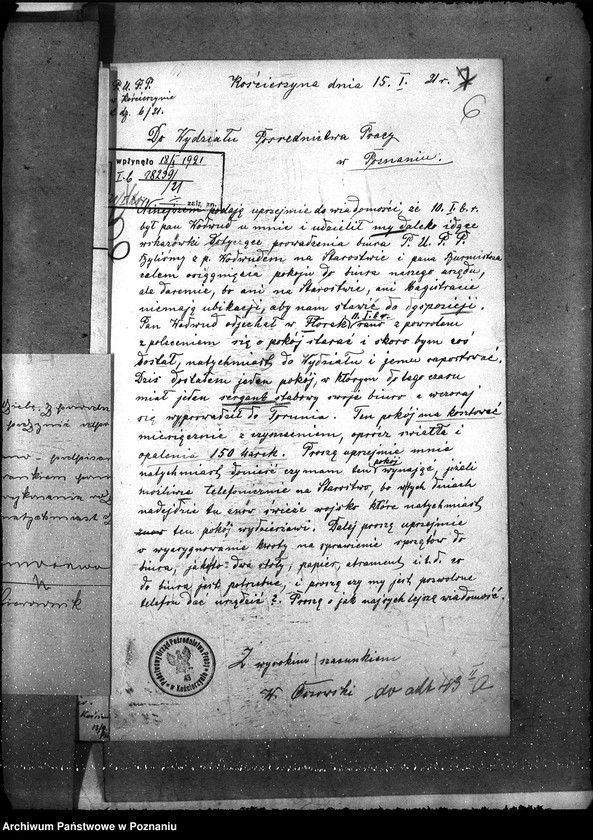 P. U. P. P.
w Kościerzynie
L. dz. 6/21.
Kościerzyna dnia 15. I. 21 r.
6
Do Wydziału Pośrednictwa Pracy
w Poznaniu.
wpłynęło 18/I 1921
I-6 18299/21
załz. zn.
Niniejszem podają uprzejmie do wiadomości, że 10. I. b. r.
był pan Wodwud u mnie i udzielił my daleko idące
wskazówki dotyczące prowadzenia biura P. U. P. P.
Byliśmy z p. Wodwudem na Starostwie i pana Burmistrza
celem osiągnięcia pokoju do biura naszego urzędu,
ale daremie, bo ani na Starostwie, ani Magistracie
niemają ubikacji, aby nam stawić do dyspozycji.
Pan Wodwud odjechał w 11. I. b. r. rano z powrotem
z poleceniem się o pokój starać i skoro bym coś
dostał, natychmiast do Wydziału i jemu raportować.
Dziś dostałem jeden pokój, w którym do tego czasu
miał jeden sergant stabowy swoje biuro a wczoraj
się wyprowadził do Torunia. Ten pokój ma kosztować
miesięcznie z czyszczeniem, oprócz światła i
opalenia 150 Marek. Proszę uprzejmie mnie
natychmiast donieść czy mam ten pokój wynająć, jeżeli
możliwie telefonicznie na Starostwo, bo w tych dniach
nadejdzie tu znów świeże wojsko które natychmiast
ten pokój wydzierżawi. Dalej proszę uprzejmie
o wyasygnowanie kwoty na sprawienie sprzętów do
biura, jakoto: dwa stoły, papier, atrament i.t.d. co
do biura jest potrzebne, i proszę czy my jest pozwolone
telefon dać urządzić? Proszę o jak najrychlejszą wiadomość.
Z wysokim szacunkiem
W.
do akt 43 II a
Państwowy Urząd Pośrednictwa Pracy
w Kościerzynie
natychmiast
Kierownik
Archiwum Państwowe w Poznaniu